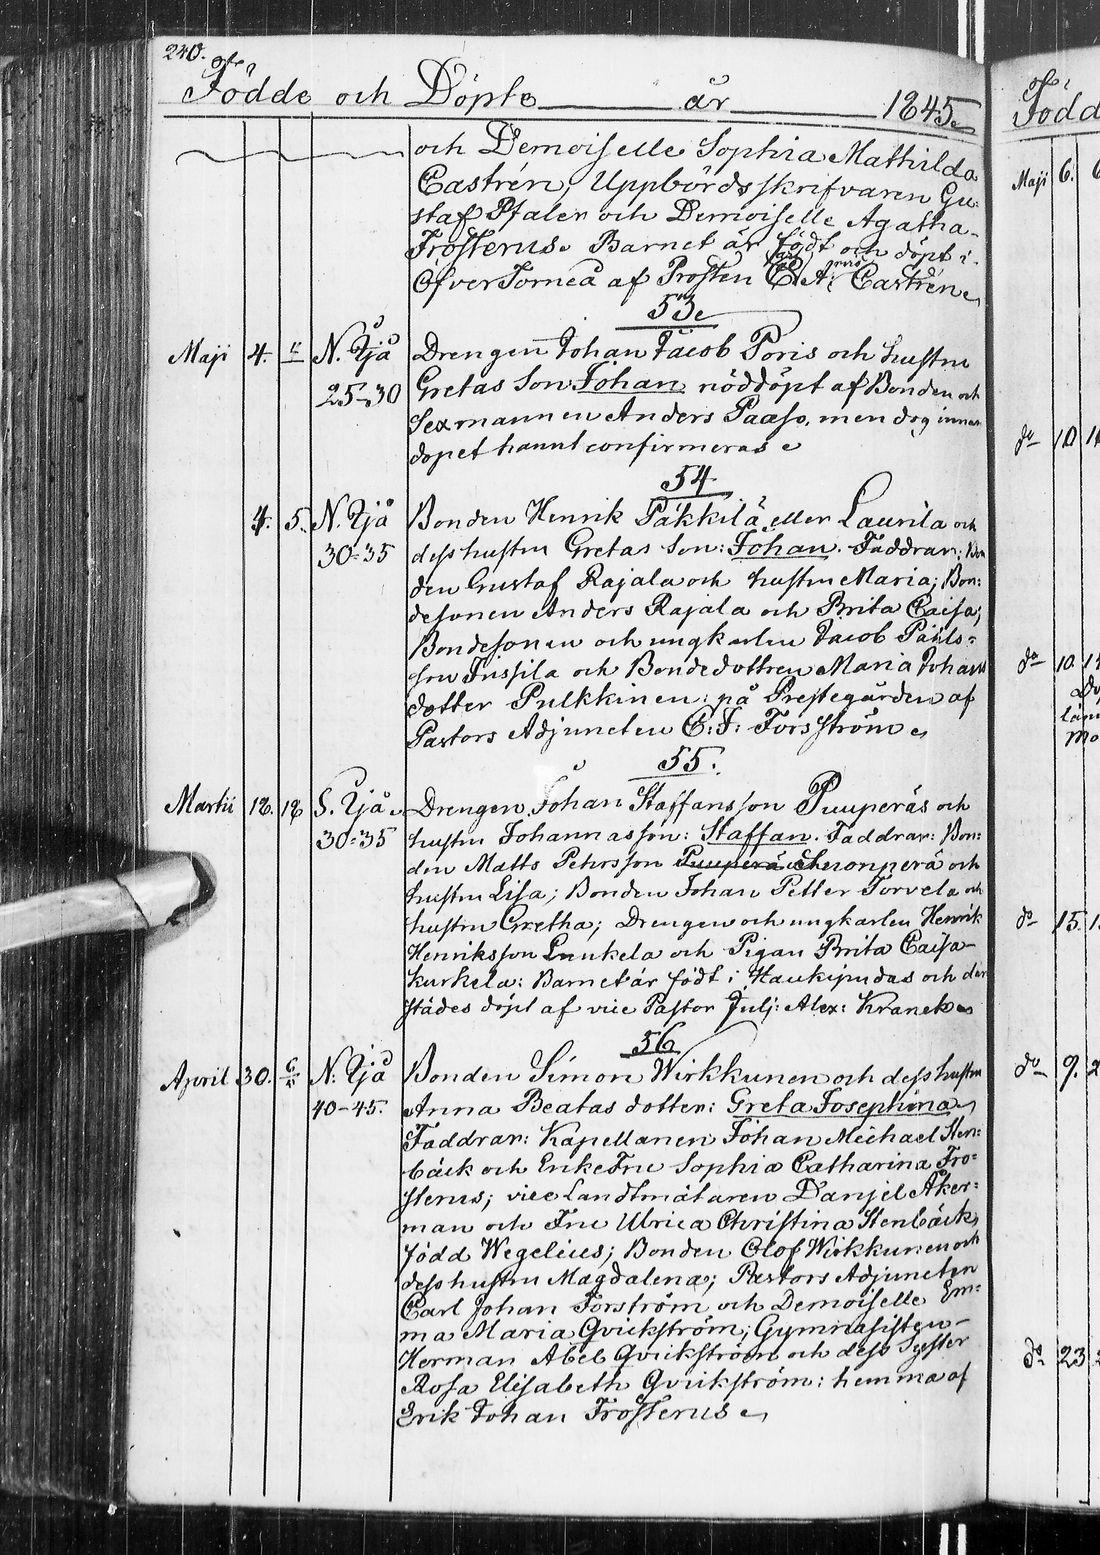 240.
Födde och Döpte år 1845.
och Demoiselle Sophia Mathilda
Castrén; Uppbördsskrifvaren Gu-
staf Pfaler och Demoiselle Agatha
Frosterus. Barnet är födt och döpt i
ÖfverTorneå af Prosten C. A. Castrén.
53.
Maji 4. N. Ijå Drengen Johan Jacob Poris och hustru
25-30 Gretas Son Johan nöddöpt af Bonden och
Sexmannen Anders Paaso, men dog innan
dopet hannt confirmeras
54
4. 5. N. Ijå Bonden Henrik Päkkilä eller Laurila och
30-35 dess hustru Gretas Son: Johan. Faddrar: Bon
den Gustaf Rajala och hustru Maria; Bon-
desonen Anders Rajala och Brita Caisa;
Bondesonen och ungkarlen Jacob Påhls-
son Frissila och Bondedottren Maria Johans
dotter Pulkkinen: på Prestegården af
Pastors Adjuncten C: J: Forsström
55.
Martii 18. 18 S. Ijå Drengen Johan Staffansson Puuperäs och
30-35 hustru Johannas son: Staffan. Faddrar: Bon-
den Matts Petersson och
hustru Lisa; Bonden Johan Petter Torvela och
hustru Gretha; Drengen och ungkarlen Henrik
Henriksson Lunkela och Pigan Brita Caisa
Kurkela: Barnet är födt i Haukipudas och der
städes döpt af vice Pastor Julj: Alex: Kranck
56
April 30. N. Ijå Bonden Simon Wirkkunen och dess hustru
40-45. Anna Beatas dotter: Greta Josephina
Faddrar: Kapellanen Johan Michael Sten-
bäck och EnkeFru Sophia Catharina Fro-
sterus; vice Landtmätaren Danjel Åker-
man och Fru Ulrica Christina Stenbäck,
född Wegelius; Bonden Olof Wirkkunen och
dess hustru Magdalena; Pastors Adjuncten
Carl Johan Forström och Demoiselle Em-
ma Maria Qvickström; Gymnasisten
Herman Abel Qvickström och dess Syster
Rosa Elisabeth Qvickström: hemma af
Erik Johan Frosterus
Född
Maji 6.
do 10
do 10.
do 15.
do 9.
do 23